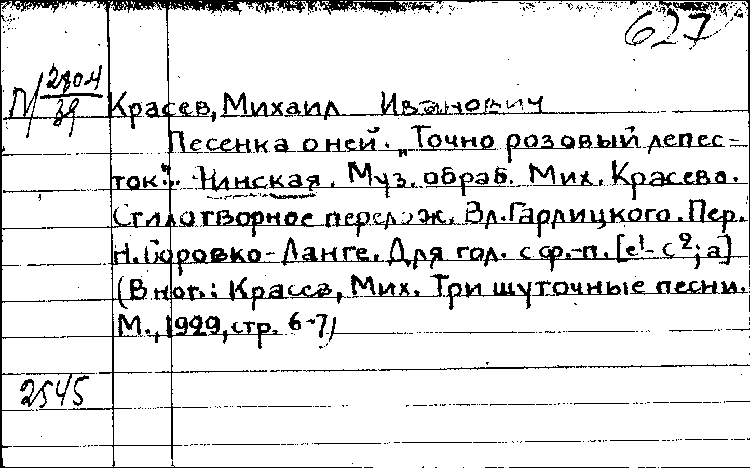 627
П/280м
39
Красев, Михаил Иванович
Песенка о ней. „Точно розовый лепес-
ток...". Чинская. Муз. обраб. Мих. Красева.
Стихотворное перелож. Вл. Гарлицкого. Пер.
Н. Боровко-Ланге. Для гол. с ф.-п. [e¹-c²; a]
(В нот.: Красев, Мих. Три шуточные песни.
М., 1929, стр. 6-7)
2545